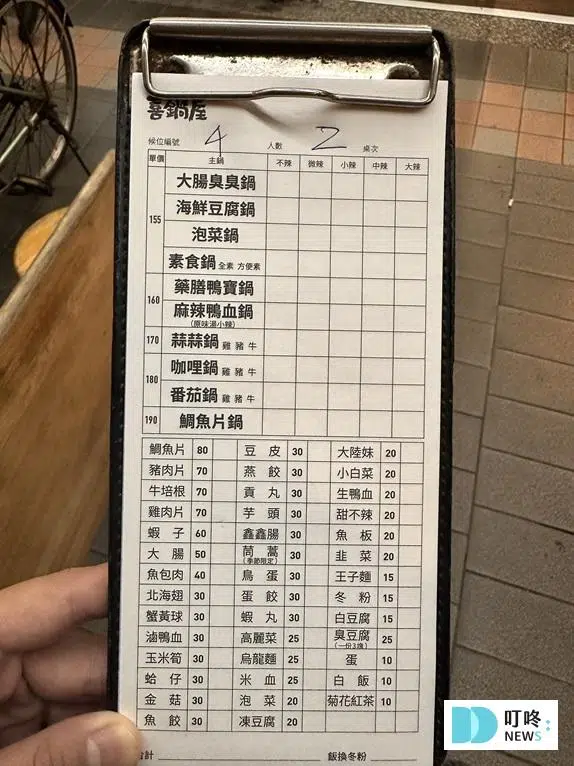 喜鍋屋
候位編號 4 人數 2 桌次
單價 主鍋 不辣 微辣 小辣 中辣 大辣
155 大腸臭臭鍋
海鮮豆腐鍋
泡菜鍋
素食鍋 全素 方便素
160 藥膳鴨寶鍋
麻辣鴨血鍋
(原味湯小辣)
170 蒜蒜鍋 雞 豬 牛
180 咖哩鍋 雞 豬 牛
番茄鍋 雞 豬 牛
190 鯛魚片鍋
鯛魚片 80 豆皮 30 大陸妹 20
豬肉片 70 燕餃 30 小白菜 20
牛培根 70 貢丸 30 生鴨血 20
雞肉片 70 芋頭 30 甜不辣 20
蝦子 60 鑫鑫腸 30 魚板 20
大腸 50 茼蒿 (季節限定) 30 韭菜 20
魚包肉 40 鳥蛋 30 王子麵 15
北海翅 30 蛋餃 30 冬粉 15
蟹黃球 30 蝦丸 30 白豆腐 15
滷鴨血 30 高麗菜 25 臭豆腐 (一份3塊) 25
玉米筍 30 烏龍麵 25 蛋 10
蛤仔 30 米血 25 白飯 10
金菇 30 泡菜 20 菊花紅茶 10
魚餃 30 凍豆腐 20
合計 飯換冬粉
叮咚
NEWS